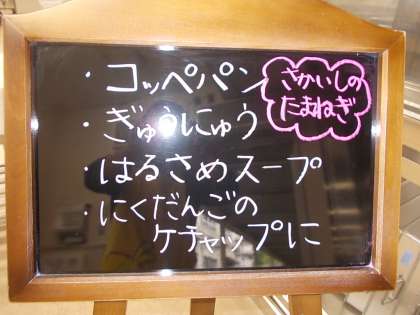 ・コッペパン
・ぎゅうにゅう
・はるさめスープ
・にくだんごの
ケチャップに
さかいしの
たまねぎ